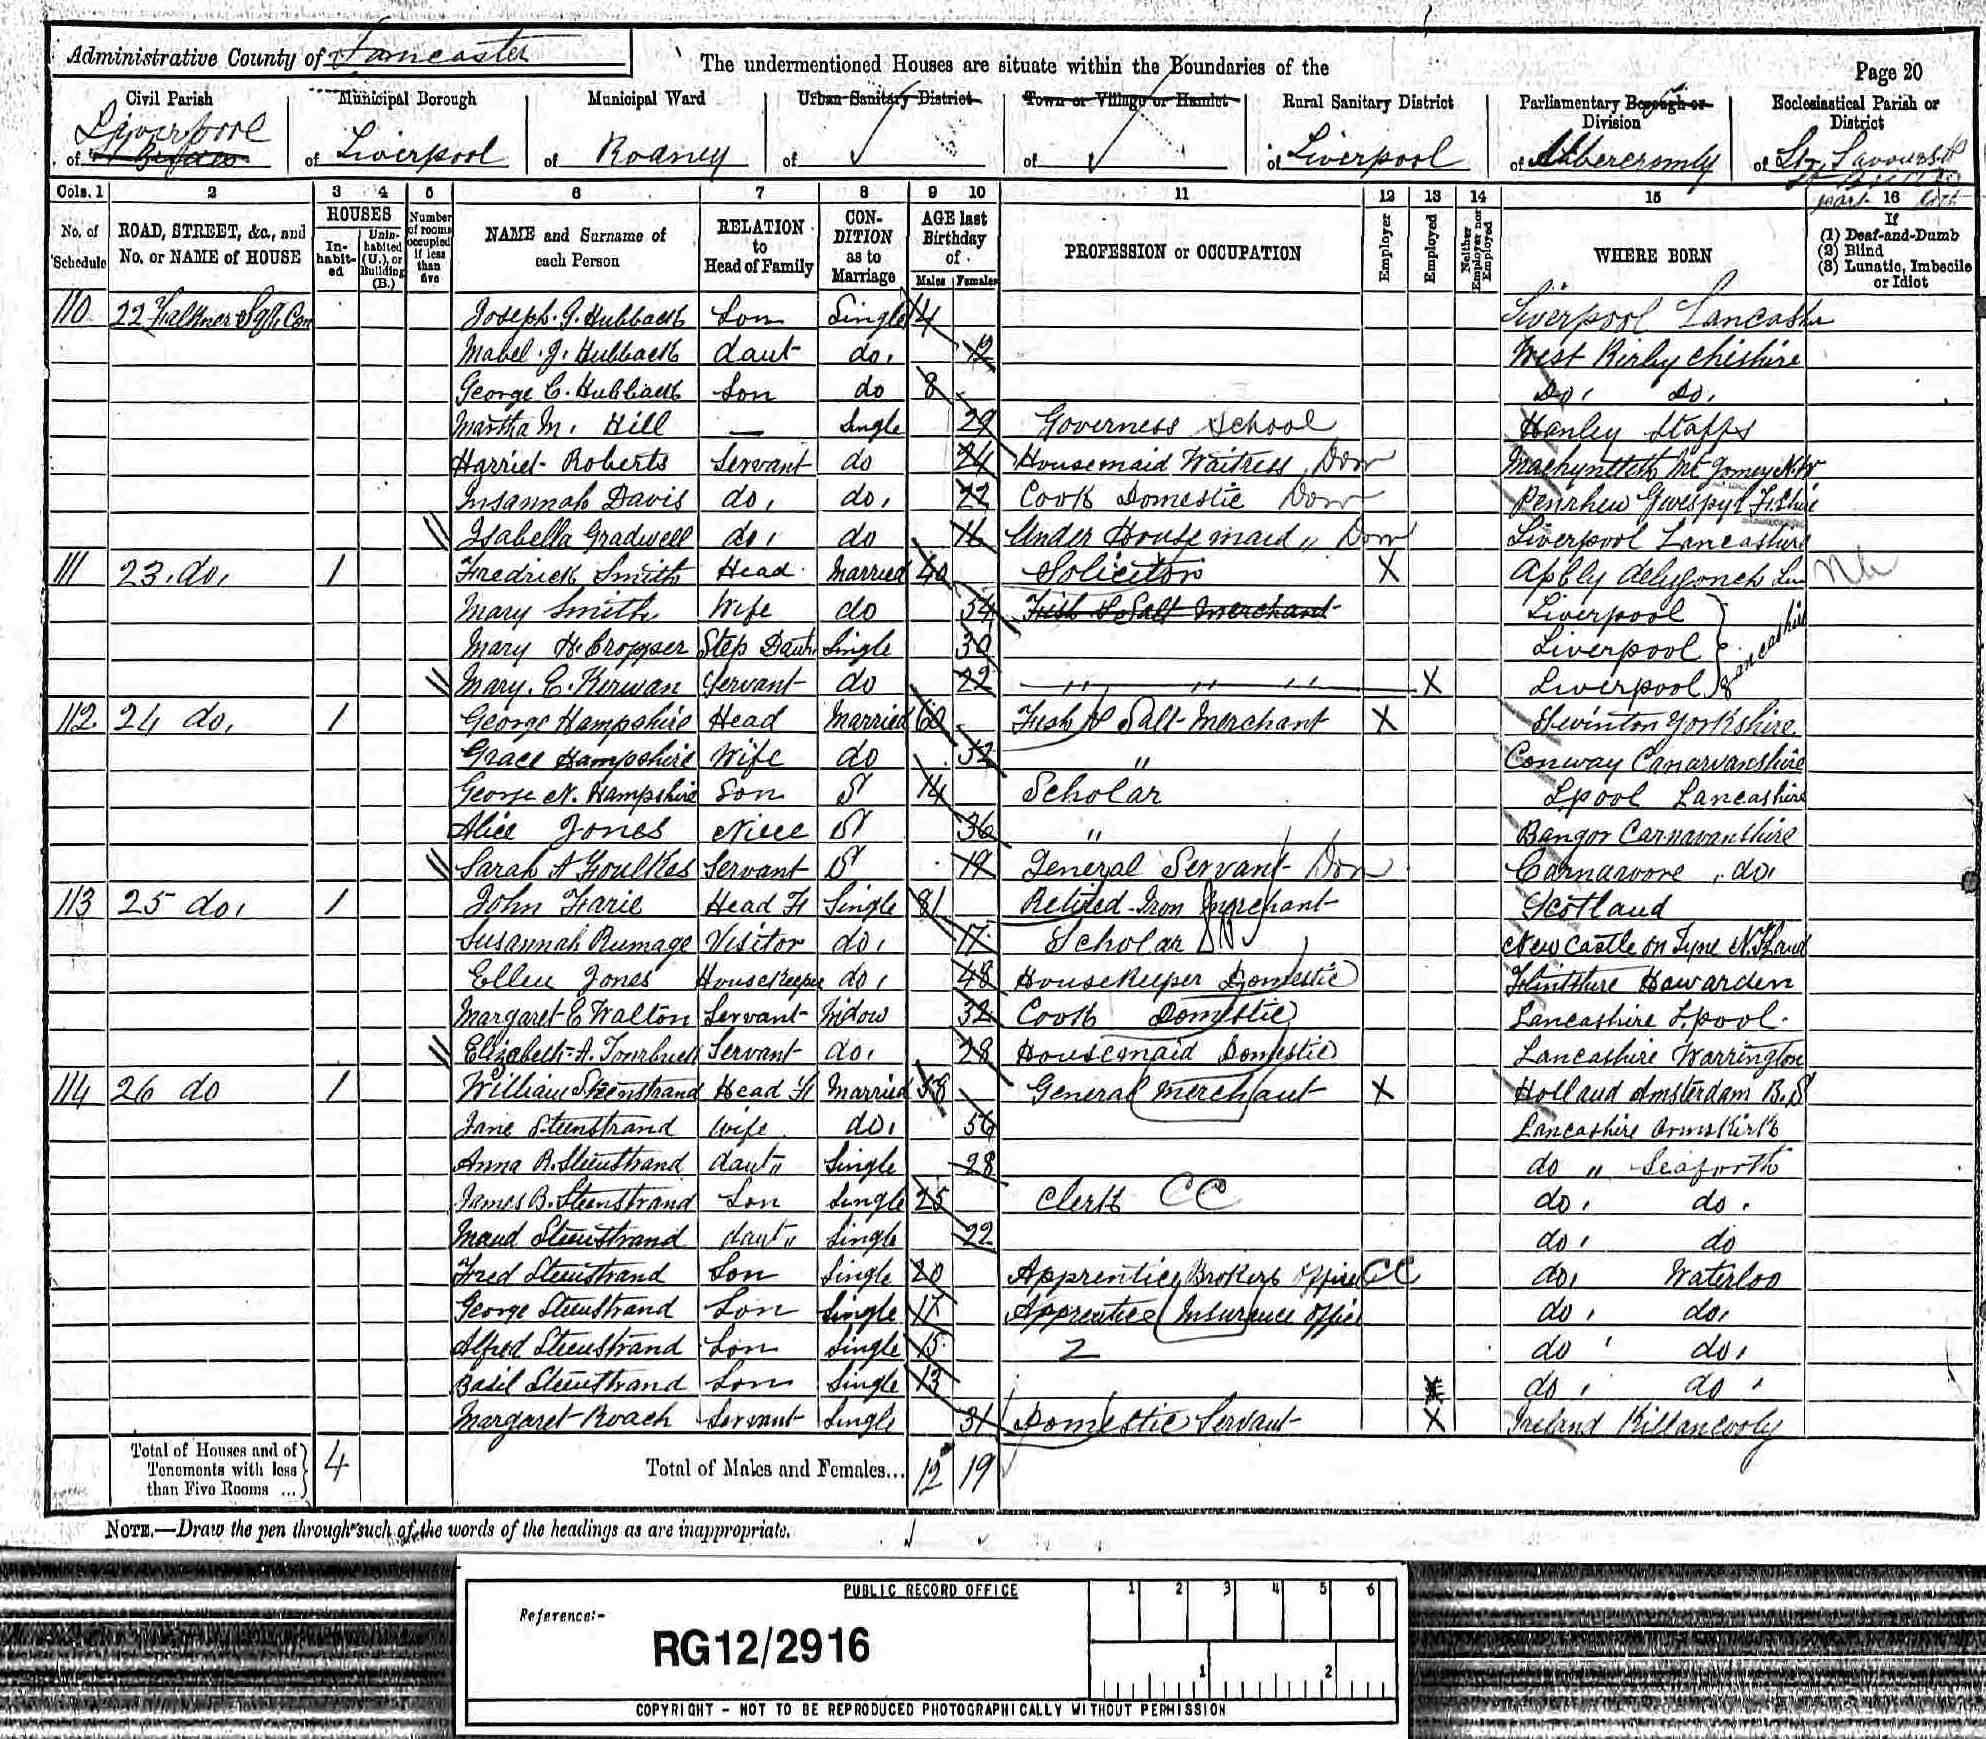 Administrative County of Lancaster
The undermentioned Houses are situate within the Boundaries of the
Page 20
Civil Parish of Liverpool
Municipal Borough of Liverpool
Municipal Ward of Rodney
Urban Sanitary District of
Town or Village or Hamlet of
Rural Sanitary District of Liverpool
Parliamentary Borough or Division of Abbercromby
Ecclesiastical Parish or District of
Cols. 1 2 3 4 5 6 7 8 9 10 11 12 13 14 15 16
No. of Schedule
ROAD, STREET, &c., and No. or NAME of HOUSE
HOUSES
Inhabited
Uninhabited (U.), or Building (B.)
Number of rooms occupied if less than five
NAME and Surname of each Person
RELATION to Head of Family
CONDITION as to Marriage
AGE last Birthday of
Males Females
PROFESSION or OCCUPATION
Employer
Employed
Neither Employer nor Employed
WHERE BORN
If (1) Deaf-and-Dumb (2) Blind (3) Lunatic, Imbecile or Idiot
110 22 Falkner Sqr Con Joseph. G. Hubback Son Single 14 Liverpool Lancashire
Mabel. J. Hubback daut do. 12 West Kirby Cheshire
George C. Hubback Son do 8 Do. Do.
Martha M. Hill — Single 29 Governess School Hanley Staffs
Harriet Roberts Servant do 24 Housemaid Waitress Dom
Susannah Davis do, do, 22 Cook Domestic Dom
Isabella Gradwell do, do 16 Under House maid „ Dom Liverpool Lancashire
111 23. do, 1 Fredrick Smith Head Married 40 Solicitor X
Mary Smith Wife do 54 Fish & Salt Merchant Liverpool
Mary H. Cropper Step Daut Single 30 Liverpool Lancashire
Mary. E. Kerwan Servant do 22 „ „ „ X Liverpool
112 24 do, 1 George Hampshire Head Married 60 Fish & Salt Merchant X Swinton Yorkshire
Grace Hampshire Wife do 52 „ Conway Canarvanshire
George N. Hampshire Son S 14 Scholar Lpool Lancashire
Alice Jones Niece S 36 „ Bangor Carnarvanshire
Sarah A Foulkes Servant S 19 General Servant Dom Carnarvon do,
113 25 do, 1 John Farie Head Single 81 Retired Iron Merchant Scotland
Susannah Rumage Visitor do, 17 Scholar New Castle on Tyne N.Land
Ellen Jones Housekeeper do, 48 Housekeeper Domestic Flintshire Hawarden
Margaret E Walton Servant Widow 32 Cook Domestic Lancashire Lpool.
Elizabeth A. Servant do, 28 Housemaid Domestic Lancashire Warrington
114 26 do 1 William Steenstrand Head Married 58 General Merchant X Holland Amsterdam B.S
Jane Steenstrand Wife do, 56 Lancashire Ormskirk
Anna B. Steenstrand daut „ Single 28 do „ Seaforth
James B. Steenstrand Son Single 25 Clerk CC do, do.
Maud Steenstrand daut „ Single 22 do, do
Fred Steenstrand Son Single 20 Apprentice Brokers Office CC do, Waterloo
George Steenstrand Son Single 17 Apprentice Insurance Office do, do,
Alfred Steenstrand Son Single 15 do do,
Basil Steenstrand Son Single 13 do, do,
Margaret Roach Servant Single 31 Domestic Servant X Ireland
Total of Houses and of Tenements with less than Five Rooms ... 4
Total of Males and Females... 12 19
NOTE.—Draw the pen through such of the words of the headings as are inappropriate.
PUBLIC RECORD OFFICE
1 2 3 4 5 6
Reference:-
RG12/2916
1 2
COPYRIGHT - NOT TO BE REPRODUCED PHOTOGRAPHICALLY WITHOUT PERMISSION